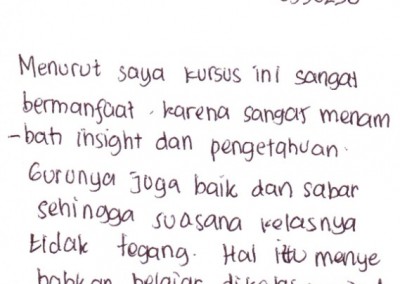 Menurut saya kursus ini sangat
bermanfaat. karena sangat menam
-bah insight dan pengetahuan.
Gurunya juga baik dan sabar
sehingga suasana kelasnya
tidak tegang. Hal itu menye
babkan belajar dikelas